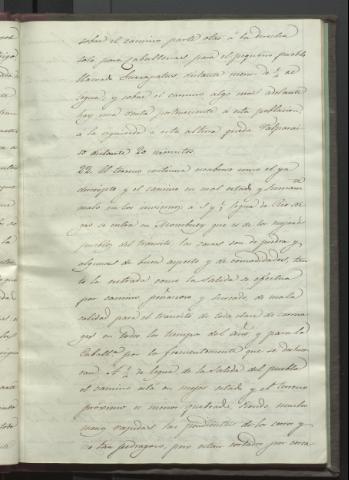 sobre el camino parte otro á la derecha
solo para caballerias para el pequeño pueblo
llamado distante menos de ½ de
legua; y sobre el camino algo mas adelante
hay una venta perteneciente á esta poblacion,
á la izquierda a esta altura queda Valparai-
so distante 20 minutos.
22. El terreno continua escabroso como el ya
descripto y el camino en mal estado y
malo en los inviernos; á 1 y ½ legua de Rio ne-
gro se entra en Mombuey que es de los mejores
pueblos del transito, las casas son de piedra y
algunas de buen aspecto y de comodidades, tan-
to la entrada como la salida se efectua
por camino peñascoso y de mala
calidad para el transito de toda clase de carrua-
ges en todos los tiempos del año, y para la
Caballa por lo frecuentemente que se deshier-
ran. A ½ de legua de la salida del pueblo
el camino está en mejor estado y el terreno
próximo es menos quebrado siendo mucho
menos rapidas las pendientes de los cerros y
no tan pedregoso, pero estan cortados por cerca-